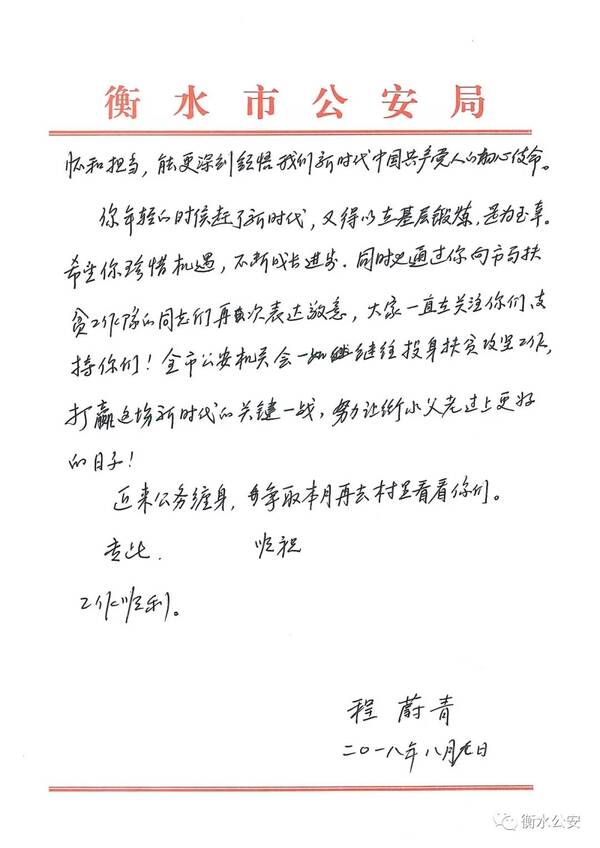 衡水市公安局
怀和担当，能更深刻领悟我们新时代中国共产党人的初心使命。
你年轻的时候赶了新时代，又得以在基层锻炼，是为至幸。
希望你珍惜机遇，不断成长进步.同时也通过你向市局扶
贫工作队的同志们再次表达敬意，大家一直在关注你们、支
持你们！全市公安机关会一如继往投身扶贫攻坚工作，
打赢这场新时代的关键一战，努力让衡水父老过上更好
的日子！
近来公务缠身，争取本月再去村里看看你们。
专此.　顺祝
工作顺利。
程蔚青
二〇一八年八月七日
衡水公安